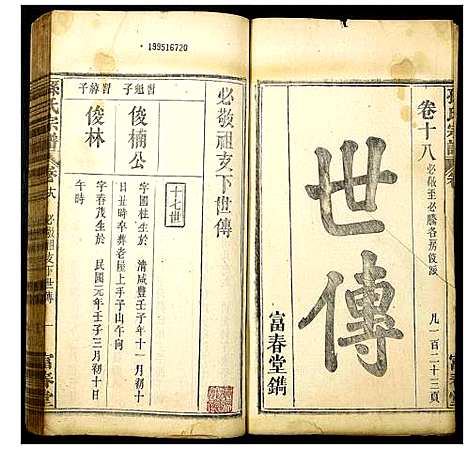 孫氏宗譜
卷十八 必敬至必勝各房後派
凡一百二十三頁
世傳
富春堂鐫
富春堂
199516720
必敬祖支下世傳
十七世
習魁子
俊楠公
字國柱生於 清咸豐壬子年十一月初十
日丑時卒葬老屋上手子山午向
習緯子
俊林
字春茂生於 民國元年壬子三月初十日
午時
孫氏宗譜
卷十八 必敬祖支下世傳 一
富春堂